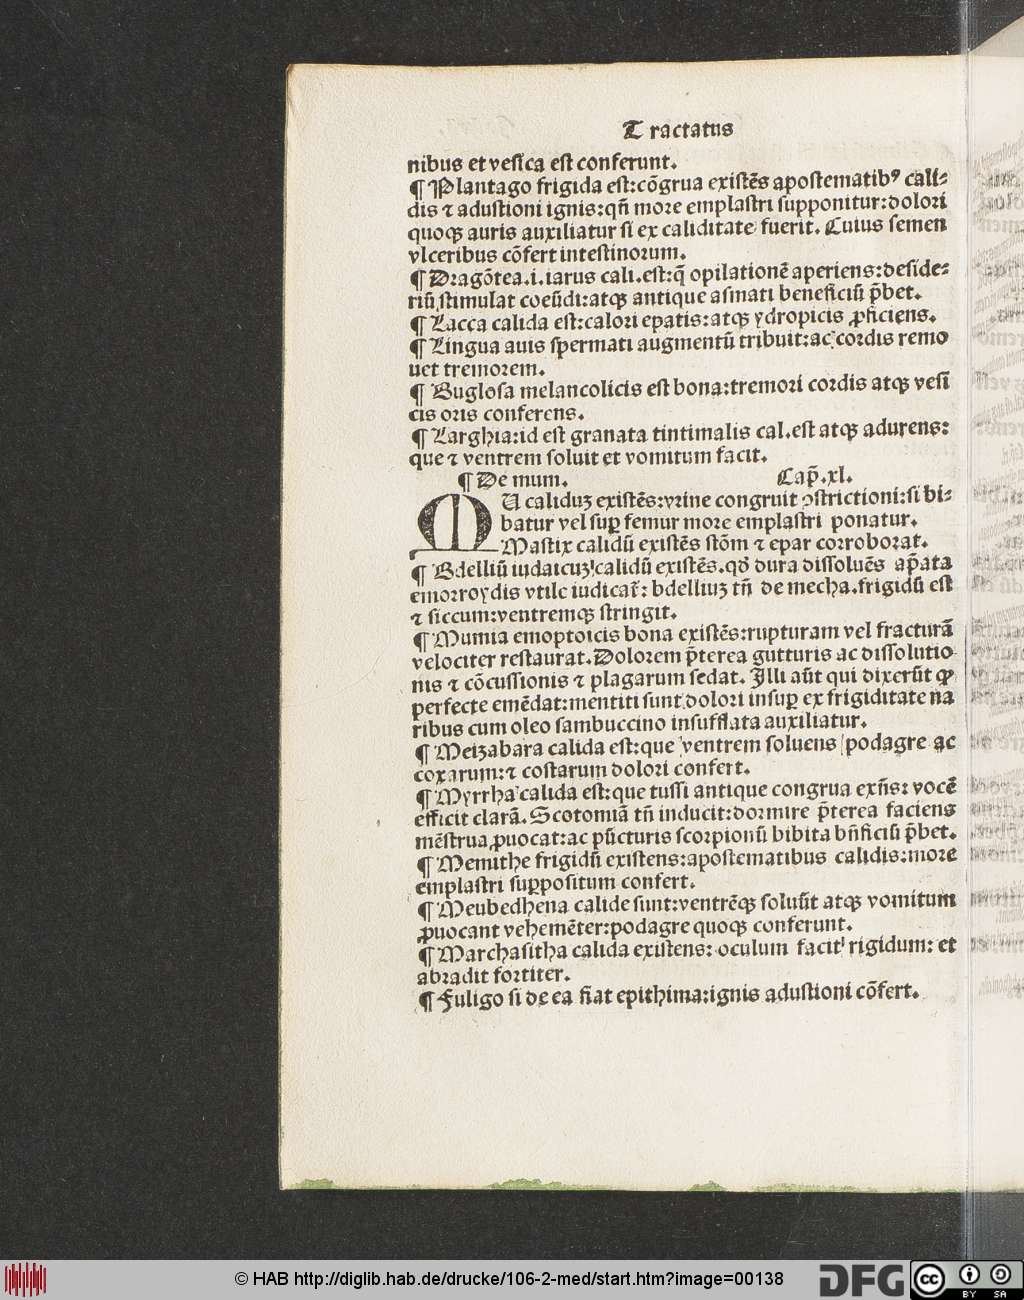 Tractatus
nibus et vesica est conferunt.
¶ Plantago frigida est:cõgrua existẽs apostematibꝰ cali⸗
dis ⁊ adustioni ignis:qñ more emplastri supponitur:dolori
quoqꝫ auris auxiliatur si ex caliditate fuerit. Cuius semen
vlceribus cõfert intestinorum.
¶ Dragõtea.i.iarus cali.est:q̃ opilationẽ aperiens:deside⸗
riũ stimulat coeũdi:atqꝫ antique asmati beneficiũ p̃bet.
¶ Lacca calida est:calori epatis:atqꝫ ydropicis ꝓficiens.
¶ Lingua auis spermati augmentũ tribuit:ac cordis remo
uet tremorem.
¶ Buglosa melancolicis est bona:tremori cordis atqꝫ vesi
cis oris conferens.
¶ Larghia:id est granata tintimalis cal.est atqꝫ adurens:
que ⁊ ventrem soluit et vomitum facit.
¶ De mum. Cap̃.xl.
MU caliduꝫ existẽs:vrine congruit ꝯstrictioni:si bi⸗
batur vel suꝑ femur more emplastri ponatur.
Mastix calidũ existẽs stõm ⁊ epar corroborat.
¶ Bdelliũ iudaicuꝫ calidũ existẽs.qđ dura dissoluẽs ap̃ata
emorroydis vtile iudicat̃: bdelliuꝫ tñ de mecha.frigidũ est
⁊ siccum:ventremqꝫ stringit.
¶ Mumia emoptoicis bona existẽs:rupturam vel fracturã
velociter restaurat. Dolorem p̃terea gutturis ac dissolutio
nis ⁊ cõcussionis ⁊ plagarum sedat. Illi aũt qui dixerũt ꝙ
perfecte emẽdat:mentiti sunt dolori insuꝑ ex frigiditate na
ribus cum oleo sambuccino insufflata auxiliatur.
¶ Meizabara calida est:que ventrem soluens podagre ac
coxarum:⁊ costarum dolori confert.
¶ Myrrha calida est:que tussi antique congrua exñs: vocẽ
efficit clarã. Scotomiã tñ inducit:dormire p̃terea faciens
mẽstrua ꝓuocat:ac pũcturis scorpionũ bibita bñficiũ p̃bet.
¶ Memithe frigidũ existens:apostematibus calidis:more
emplastri suppositum confert.
¶ Meubedhena calide sunt:ventrẽqꝫ soluũt atqꝫ vomitum
ꝓuocant vehemẽter:podagre quoqꝫ conferunt.
¶ Marchasitha calida existens: oculum facit rigidum: et
abradit fortiter.
¶ Fuligo si de ea fiat epithima:ignis adustioni cõfert.
© HAB http://diglib.hab.de/drucke/106-2-med/start.htm?image=00138
DFG
cc
BY SA